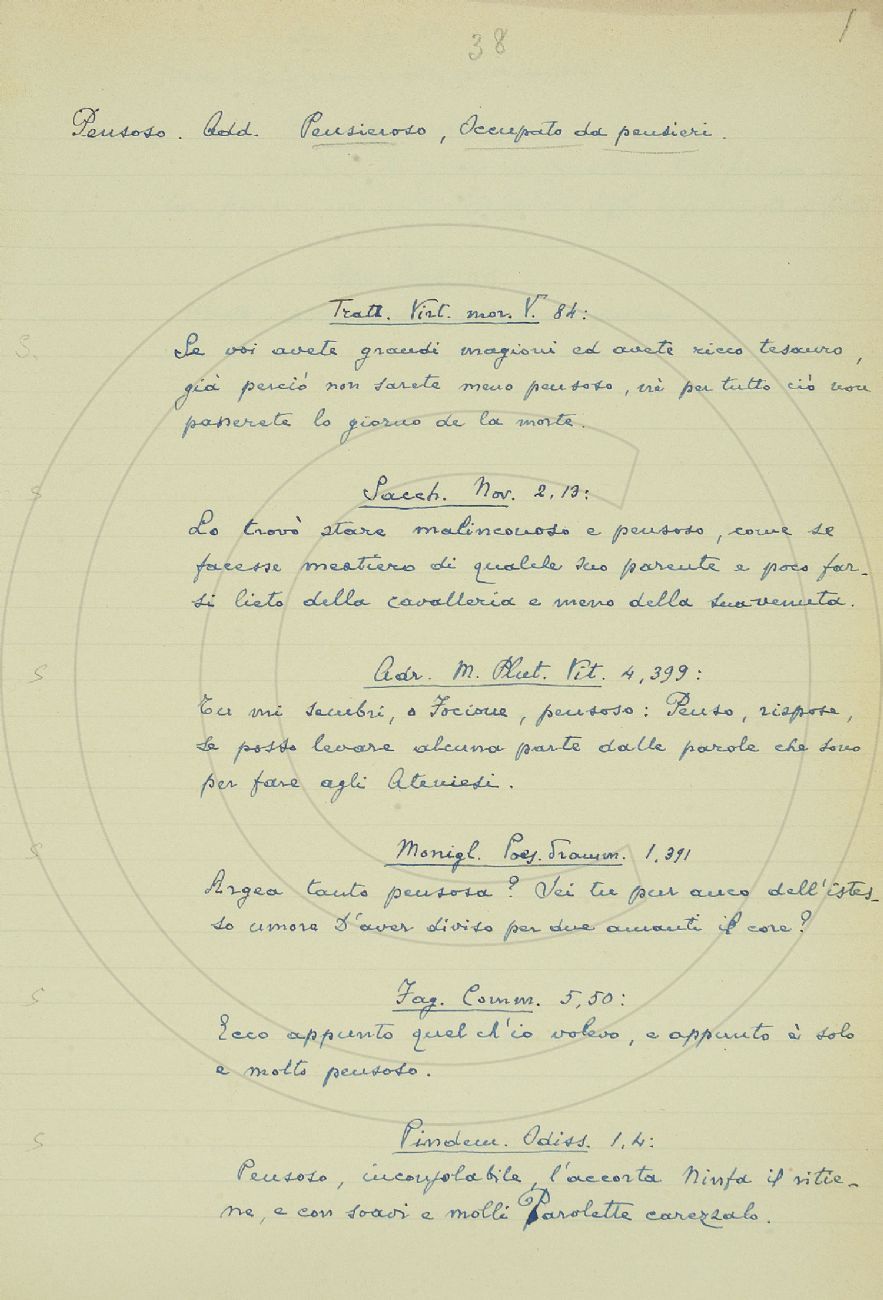 38
1
Pensoso. Add. Pensieroso, Occupato da pensieri.
Tratt. Virt. mor. V. 84:
S.
Se voi avete grandi magioni ed avete ricco tesauro,
già perciò non sarete meno pensoso, nè per tutto ciò non
passerete lo giorno de la morte.
S
Sacch. Nov. 2,13:
Lo trovò stare malinconoso e pensoso, come se
facesse mestiero di qualche suo parente e poco far-
si lieto della cavalleria e meno della sua venuta.
S
Adr. M. Plut. Vit. 4,399:
Tu mi sembri, o Focione, pensoso: Penso, rispose,
se posso levare alcuna parte dalle parole che sono
per fare agli Ateniesi.
S
Monigl. Poes. Dramm. 1,391
Argea tanto pensosa? Sei tu pur anco dell'istes-
so umore D'aver diviso per due amanti il core?
S
Fag. Comm. 5,50:
Ecco appunto quel ch'io volevo, e appunto è solo
e molto pensoso.
S
Pindem. Odiss. 1,4:
Pensoso, inconsolabile, l'accorta Ninfa il ritie-
ne, e con soavi e molli Parolette carezzalo.